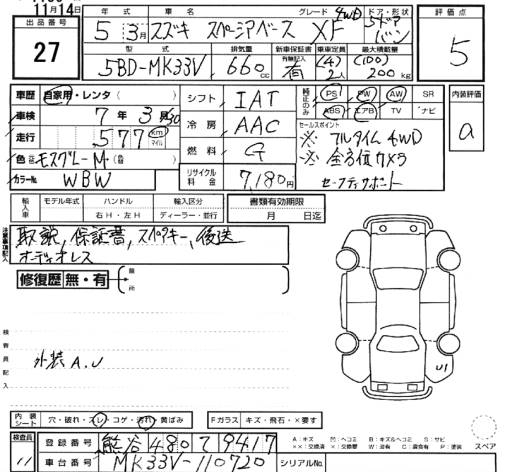 11月14日
出品番号
27
年式 車名 グレード ドア・形状
5年3月 スズキ スペーシアベース XF 4WD 5ドア バン
型式 排気量 新車保証書 乗車定員 最大積載量
5BD-MK33V 660cc 有無記入 有 (4) 2人 (100) 200kg
評価点
5
車歴 自家用・レンタ( )
車検 7年3月30
走行 577 km マイル
色 モスグレーM (色 )
カラーNo. WBW
シフト IAT
冷房 AAC
燃料 G
リサイクル料金 7,180円
純正のみ PS PW AW SR
ABS エアB TV ナビ
セールスポイント
※ フルタイム4WD
※ 全方位カメラ
セーフティサポート
内装評価
a
輸入車 モデル年式 ハンドル 輸入区分
右H・左H ディーラー・並行
書類有効期限
月 日迄
注意事項記入
取説、保証書、スペアキー、後送
オーディオレス
修復歴 無・有 箇所
検査員記入
外装A.U
U1
内装シート 穴・破れ・スレ・コゲ・汚れ・黄ばみ
Fガラス キズ・飛石・×要す
検査員 11
登録番号 熊谷 480 て 9417
車台番号 MK33V-110720
シリアルNo.
A:キズ M:ヘコミ B:キズ&ヘコミ S:サビ
××:交換済 ×:要交換 W:波有 C:腐食有 P:塗装
スペア